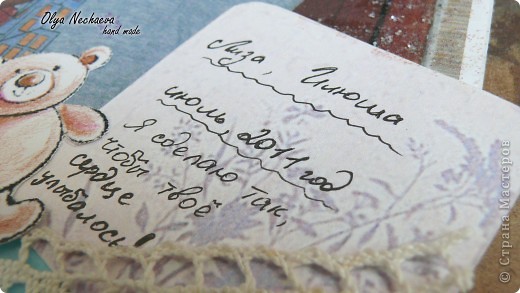 Olya Nechaeva
hand made
Лиза, Илюша
июль 2011 год
Я сделаю так,
чтобы твоё
сердце
улыбалось!
© Страна Мастеров